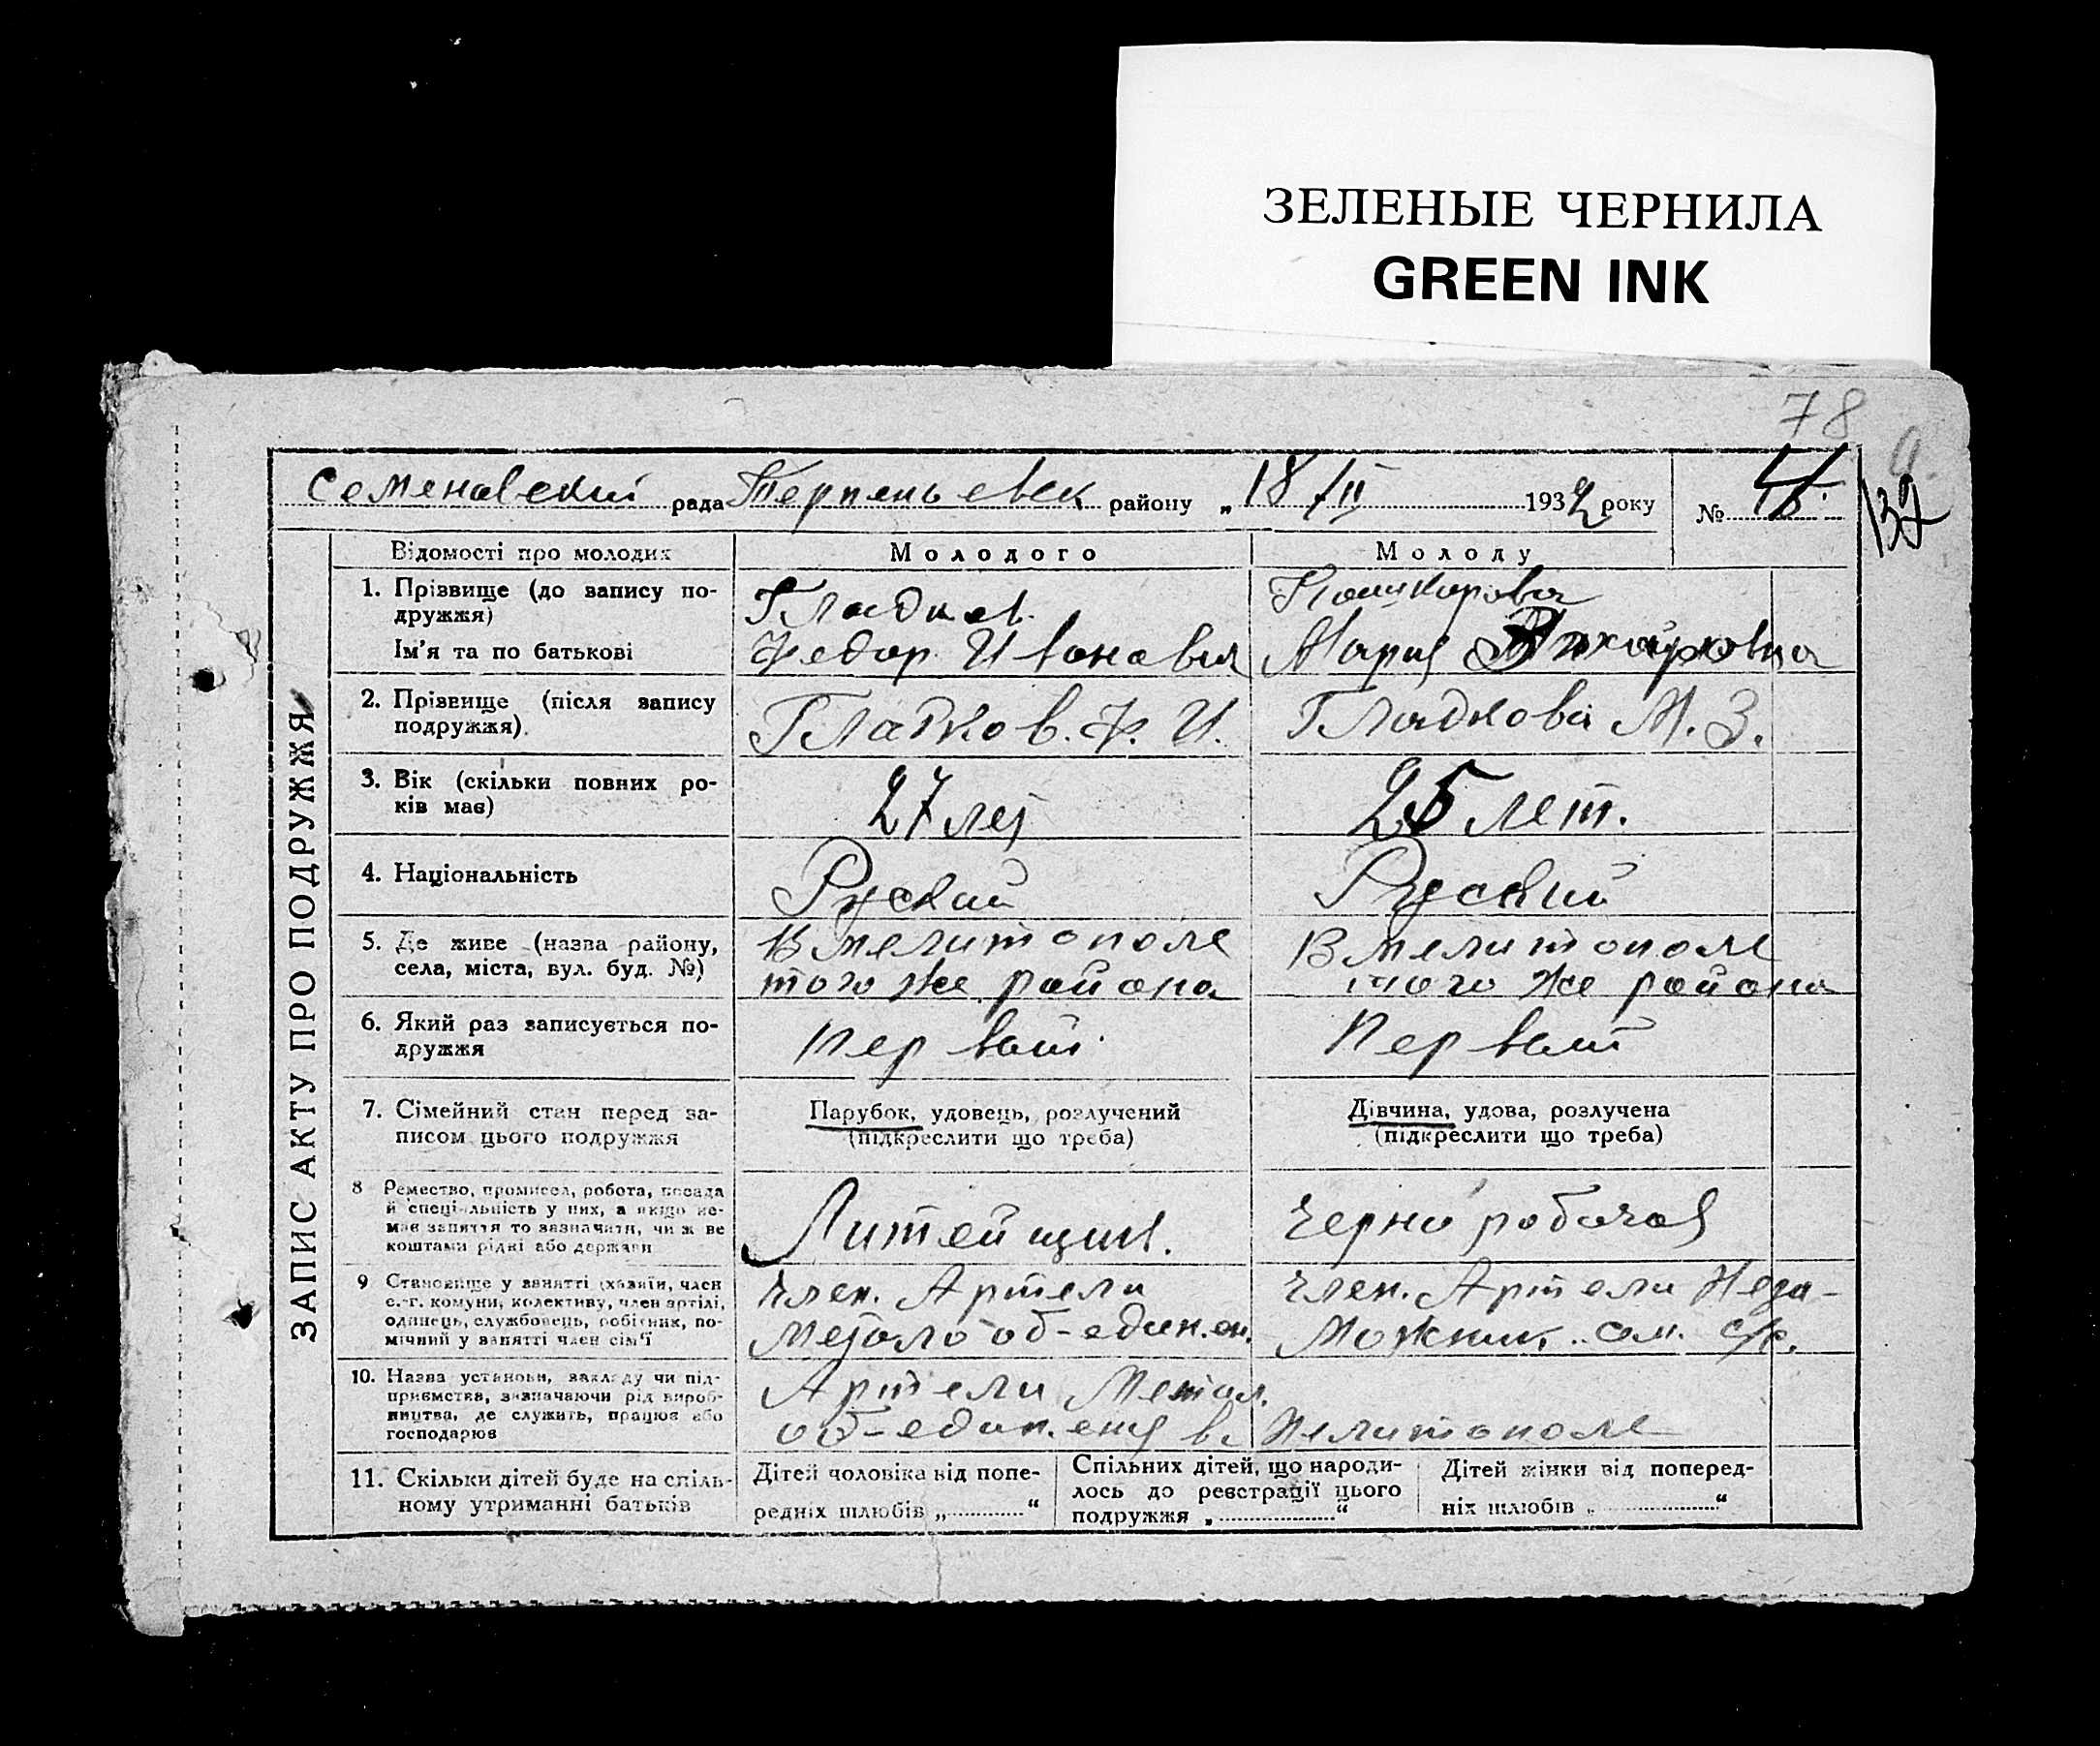 ЗЕЛЕНЫЕ ЧЕРНИЛА
GREEN INK
78
Семеновский рада Терпеньевск району „18/II 1932 року №
ЗАПИС АКТУ ПРО ПОДРУЖЖЯ
Відомості про молодих Молодого Молоду
1. Прізвище (до запису по-
дружжя)
Ім'я та по батькові
Гладков
Федор Иванович
Мария
2. Прізвище (після запису
подружжя)
Гладков. Ф. И.
Гладкова М. З.
3. Вік (скільки повних ро-
ків має)
27 лет
25 лет.
4. Національність
Руский
Руский
5. Де живе (назва району,
села, міста, вул. буд. №)
В мелитополе
того же района
В мелитополе
того же района
6. Який раз записується по-
дружжя
Первый
Первый
7. Сімейний стан перед за-
писом цього подружжя
Парубок, удовець, розлучений
(підкреслити що треба)
Дівчина, удова, розлучена
(підкреслити що треба)
8 Ремество, промисел, робота, посада
й спеціяльність у них, а якщо не-
має заняття то зазначати, чиїми
коштами рідні або держави
Литейщик.
Чернорабочая
9 Становище у занятті (хазяїн, член
с.-г. комуни, колективу, член артілі,
одинець, службовець, робітник, по-
мічний у занятті член сім'ї
Член. Артели
Метало об-единен.
Член. Артели Неза-
можник. сем. с/р.
10. Назва установи, закладу чи під-
приємства, зазначаючи рід вироб-
ництва, де служить, працює або
господарює
Артели Метал.
об-единения в Мелитополе
11. Скільки дітей буде на спіль-
ному утриманні батьків
Дітей чоловіка від попе-
редніх шлюбів „ “
Спільних дітей, що народи-
лось до реєстрації цього
подружжя „ “
Дітей жінки від поперед-
ніх шлюбів „ “